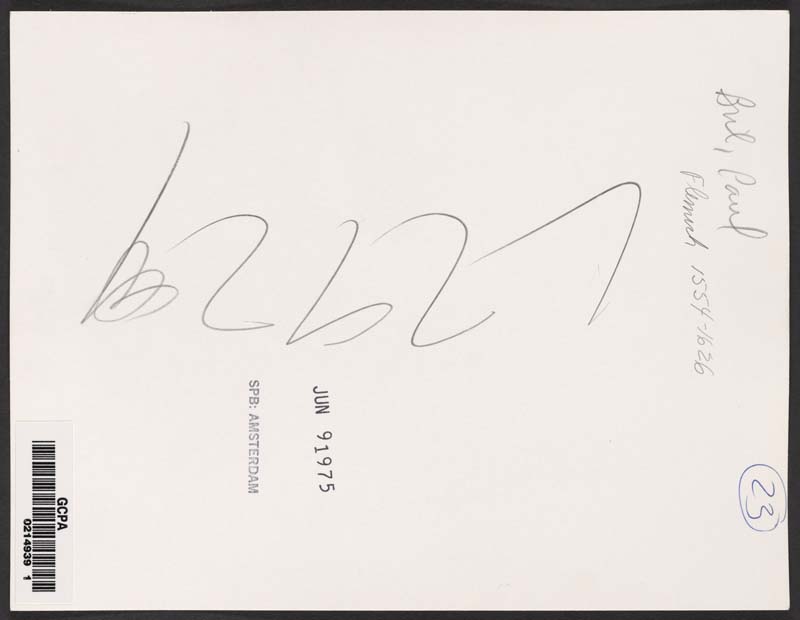 Bril, Paul
Flemish 1554-1626
23
JUN 9 1975
SPB: AMSTERDAM
GCPA
0214939 1